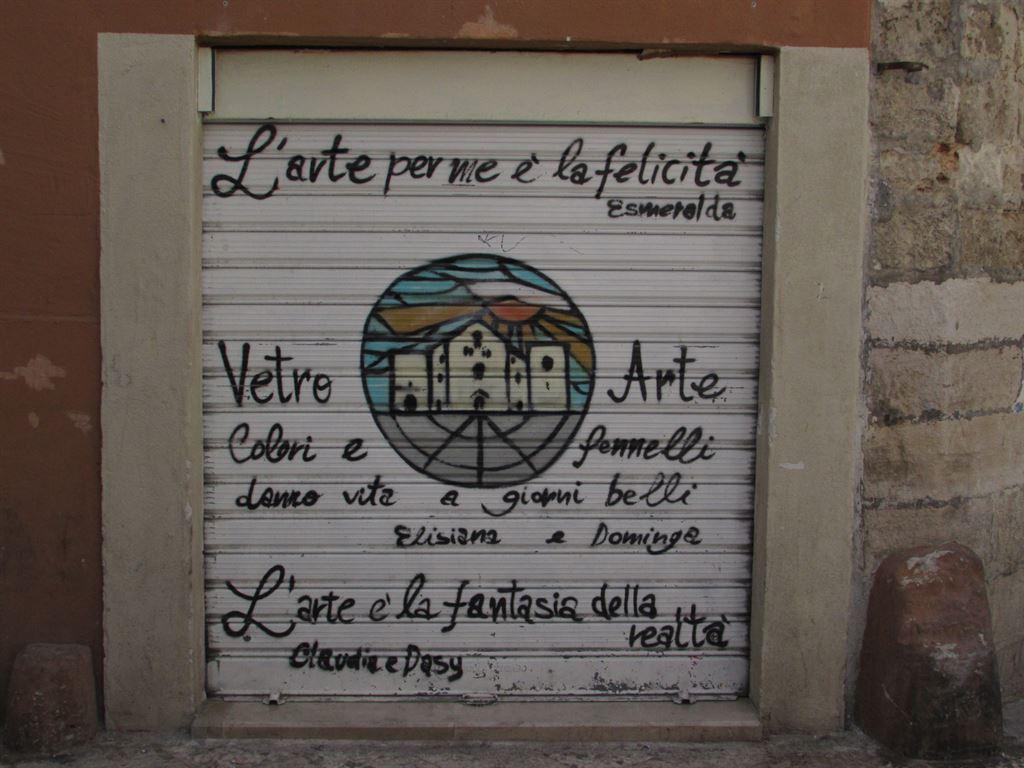 L'arte per me è la felicità
Esmeralda
Vetro Arte
Colori e pennelli
danno vita a giorni belli
Elisiana e Dominga
L'arte è la fantasia della
realtà
Claudia e Dasy